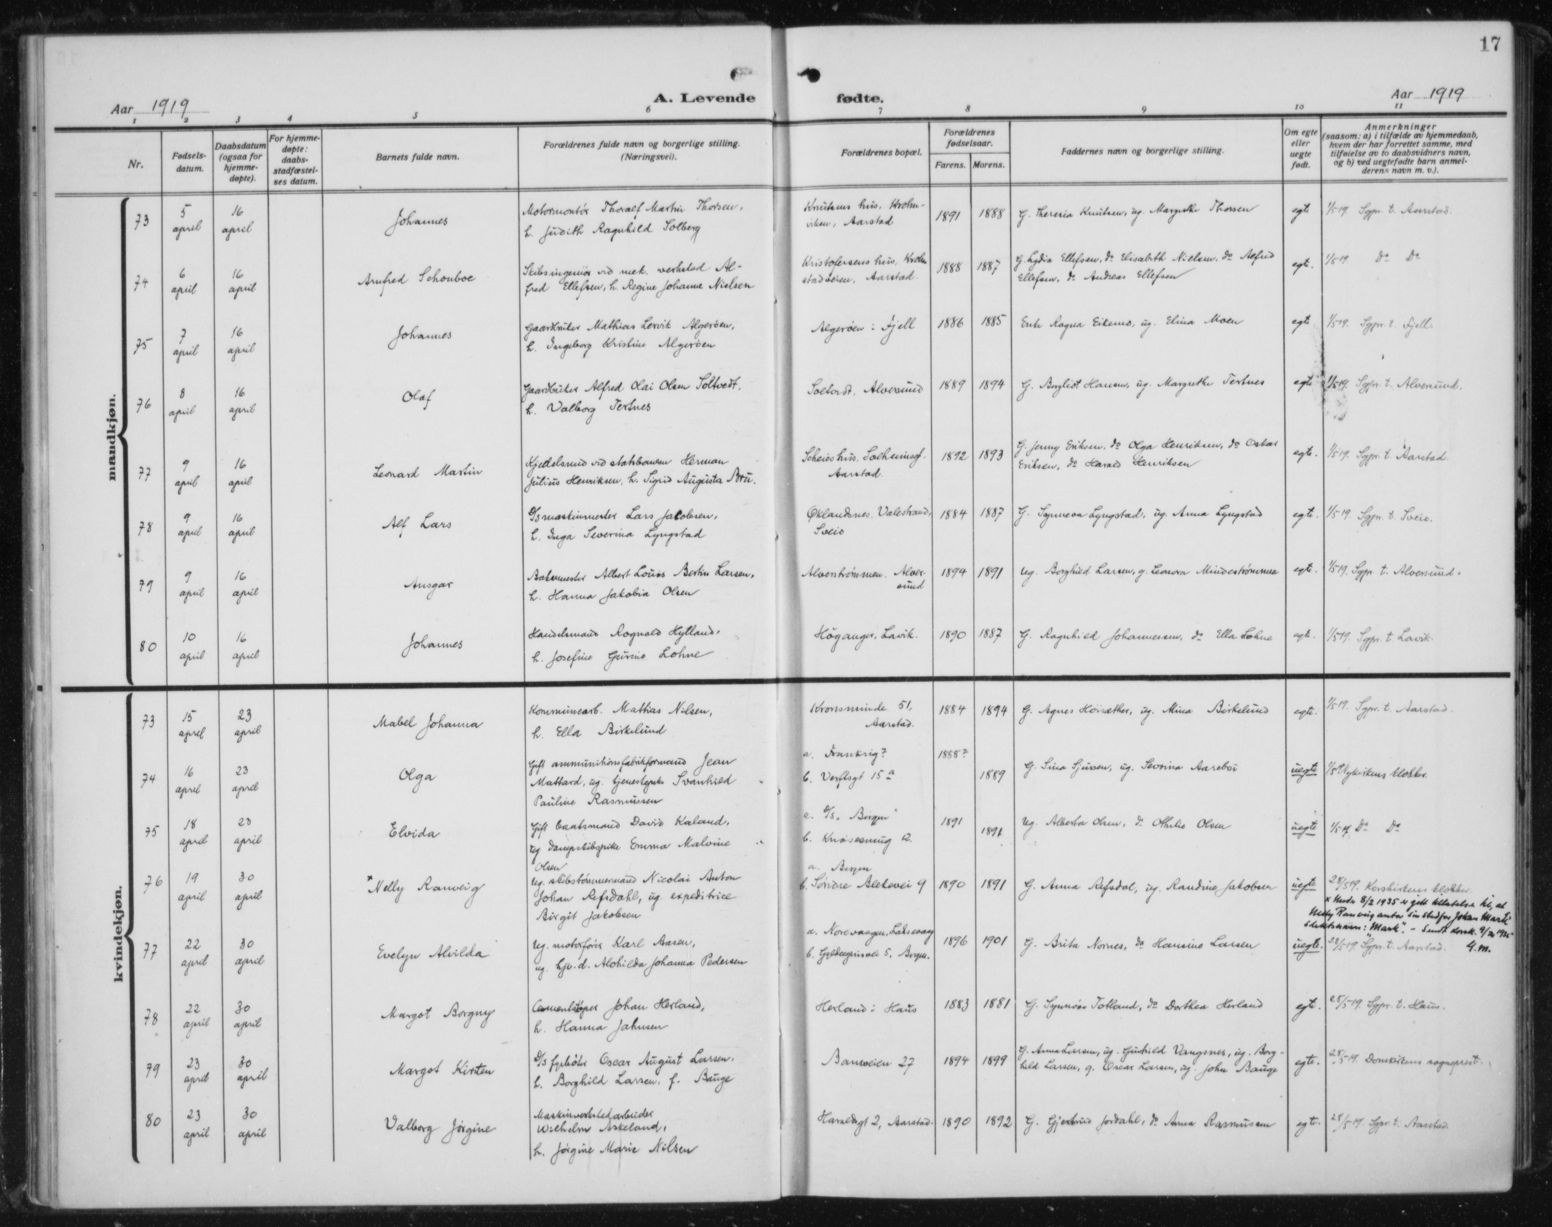 17
Aar 1919
A. Levende fødte.
Aar 1919
1 2 3 4 5 6 7 8 9 10 11
Nr.
Fødsels-
datum.
Daabsdatum
(ogsaa for
hjemme-
døpte).
For hjemme-
døpte:
daabs-
stadfæstel-
ses datum.
Barnets fulde navn.
Forældrenes fulde navn og borgerlige stilling.
(Næringsvei).
Forældrenes bopæl.
Forældrenes
fødselsaar.
Farens. Morens.
Faddernes navn og borgerlige stilling.
Om egte
eller
uegte
født.
Anmerkninger
(saasom: a) i tilfælde av hjemmedaab,
hvem der har forrettet samme, med
tilføielse av to daabsvidners navn,
og b) ved uegtefødte barn anmel-
derens navn m. v.).
mandkjøn.
73
5 april
16 april
Johannes
Motormontør Thoralf Martin Thorsen,
h. Judith Ragnhild Solberg
Knutsens hus, Krohn-
viken, Aarstad
1891 1888
G. Theresia Knutsen, ug. Margrethe Thorsen
egte
1/5 19. Sgpr. t. Aarstad.
74
6 april
16 april
Arnfred Schouboe
Skibsingeniør ved mek. verksted Al-
fred Ellefsen, h. Regine Johanne Nielsen
Kristofersens hus, Krohn
Aarstad
1888 1887
G. Lydia Ellefsen, do Elisabeth Nielsen, do Alfred
Ellefsen, do Andreas Ellefsen
egte.
1/5 19 Do Do
75
7 april
16 april
Johannes
Gaardbruker Mathias Lervik Algerøen,
h. Ingeborg Kristine Algerøen
Algerøen i Fjell
1886 1885
Enke Ragna Eikemo, ug. Elina Moen
egte
1/5 19. Sgpr. t. Fjell.
76
8 april
16 april
Olaf
Gaardbruker Alfred Olai Olsen Soltvedt,
h. Valborg Tertnes
Soltvedt, Alversund
1889 1894
G. Bergliot Hansen, ug. Margrethe Tertnes
egte
1/5 19. Sgpr. t. Alversund.
77
9 april
16 april
Leonard Martin
Kjedelsmed ved statsbanen Herman
Julius Henriksen, h. Sigrid Augusta Bru.
Aarstad
1892 1893
G. Jenny Eriksen, do Olga Henriksen, do Oskar
Eriksen, do Harald Henriksen
egte.
1/5 19. Sgpr. t. Aarstad
78
9 april
16 april
Alf Lars
D/s maskinmester Lars Jacobsen,
h. Inga Severina Lyngstad
Øklandsnes, Valestrand,
Sveio
1884 1887
G. Synneva Lyngstad, ug. Anna Lyngstad
egte.
1/5 19 Sgpr. t. Sveio.
79
9 april
16 april
Ansgar
Albert Louis Bertin Larsen,
h. Hanna Jakobia Olsen
Alverstrømmen, Alver-
sund
1894 1891
ug. Borghild Larsen, g. Leonora Mindestrømmen
egte.
1/5 19. Sgpr. t. Alversund.
80
10 april
16 april
Johannes
Handelsmand Rognald Hylland,
h. Josefine Gurine Lohne
Høyanger, Lavik.
1890 1887
G. Ragnhild Johannessen, do Ella Lohne
egt.
1/5 19. Sgpr. t. Lavik.
kvindekjøn.
73
15 april
23 april
Mabel Johanna
Kommunearb. Mathias Nilsen,
h. Ella Birkelund
Kronsminde 51,
Aarstad.
1884 1894
G. Agnes Høisæther, ug. Mina Birkelund
egte.
1/5 19. Sgpr. t. Aarstad.
74
16 april
23 april
Olga
Gift ammunitionsfabrikformand Jean
Mattard, ug. tjenestepike Svanhild
Pauline Rasmussen
a. Frankrig?
b. Verftsgt 15 a
1888?
1889
G. Sina Sjursen, ug. Severina Aarebøe
uegte
1/5 Nykirkens klokker.
75
18 april
23 april
Elvida
Gift baatsmand David Kaland,
ug. dampskibspike Emma Malvine
Olsen
a. S/s. Bergen
b.
1891
1891
Ug. Alberta Olsen, do Othilie Olsen
uegte
1/5 19 Do Do
76
19 april
30 april
× Nelly Ranveig
Ug. skibstømmermand Nicolai Anton
Johan Refsdahl, ug. expeditrice
Birgit Jakobsen
a. Bergen
b. Søndre Blekevei 9
1890 1891
G. Anna Refsdal, ug. Randine Jakobsen
uegte
28/5 19. Korskirkens klokker.
× Under 8/2 1935 er gitt tillatelse til, at
Nelly Ranveig antar sin stedfar Johan Mark's
slektsnavn: "Mark".
77
22 april
30 april
Evelyn Alvilda
Ug. motorfører Karl Aasen,
ug. hjv. d. Alohilda Johanna Pedersen
a. Nordvangen, Laksevaag
b. 5, Bergen.
1896 1901
G. Brita Nornes, do Hansine Larsen
uegte
28/5 19. Sgpr. t. Aarstad.
G.M.
78
22 april
30 april
Margot Borgny
Cementstøper Johan Herland,
h. Hanna Jahnsen
Herland i Haus
1883 1881
G. Synnøve Totland, do Dorthea Herland
egt.
28/5 19. Sgpr. t. Haus.
79
23 april
30 april
Margot Kirsten
D/s fyrbøter Oscar August Larsen,
h. Borghild Larsen, f. Bauge
Baneveien 27
1894 1899
G. Anna Larsen, ug. Gunhild Vangsnes, ug. Borg-
hild Larsen, g. Oscar Larsen, ug. John Bauge
egte.
28/5 19. Domkirkens sogneprest.
80
23 april
30 april
Valborg Jørgine
Maskinverkstedarbeider
Wilhelm Askeland,
h. Jørgine Marie Nilsen
Haraldsgt 2, Aarstad.
1890 1892
G. Gjertrud Jordahl, do Anna Rasmussen
egt.
28/5 19. Sgpr. t. Aarstad.